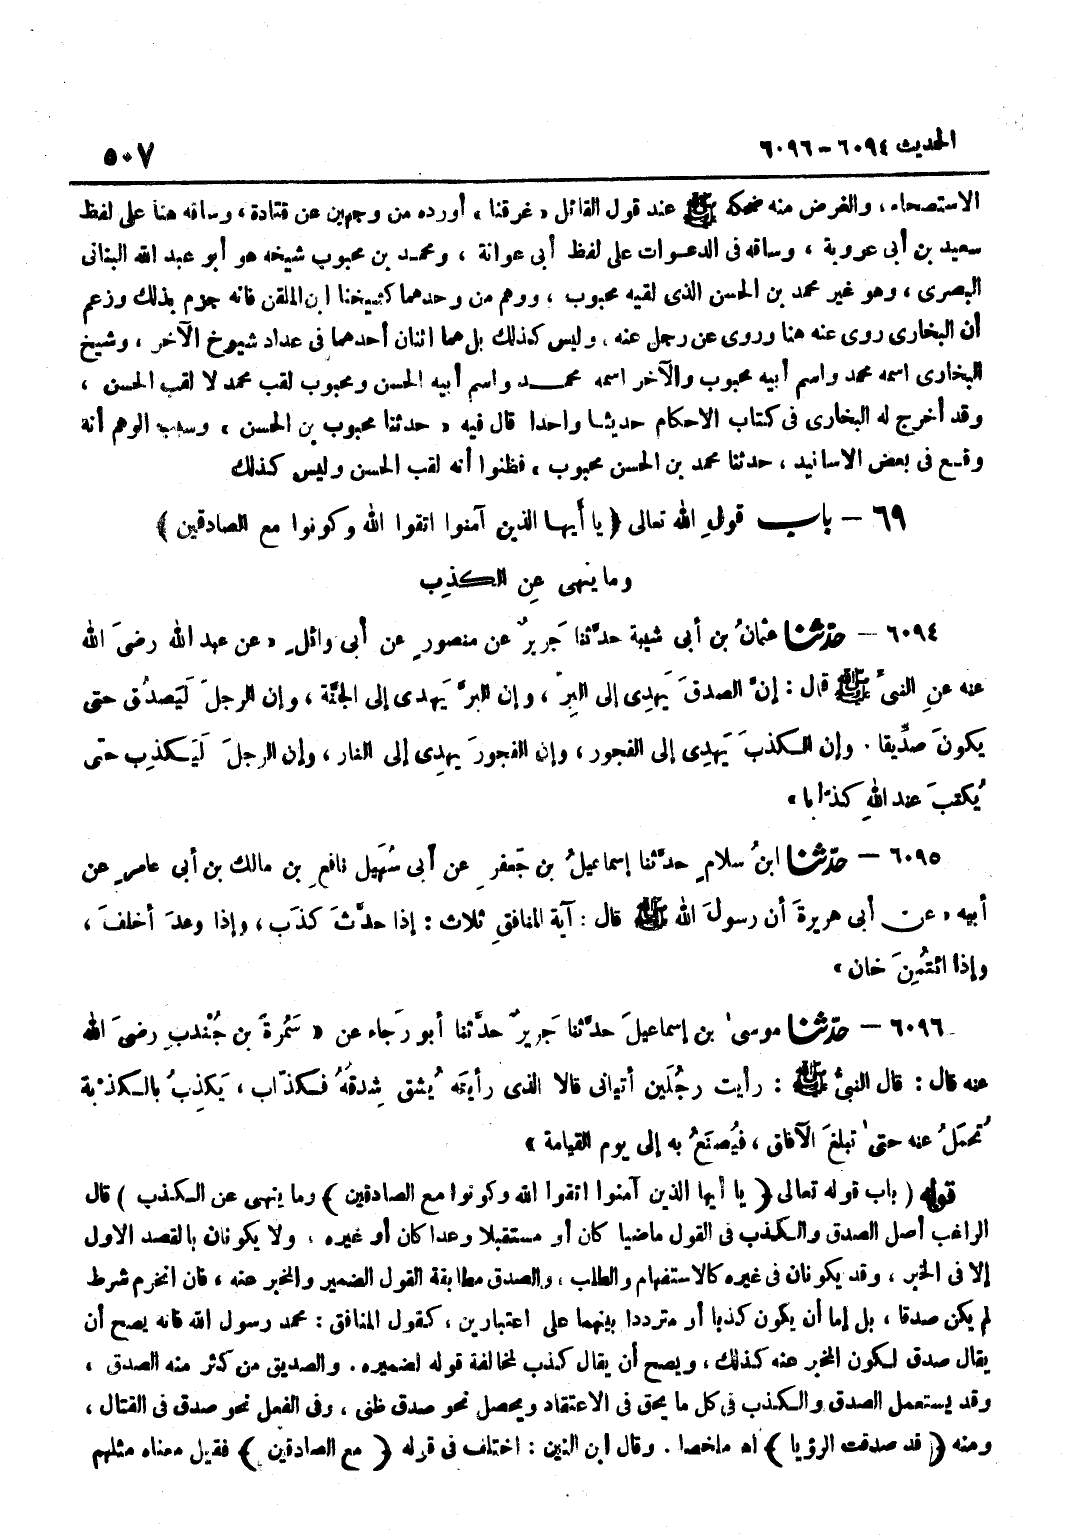 الحديث ٦٠٩٤ - ٦٠٩٦
٥٠٧
الاستصحاء ، والغرض منه ضحكه ﷺ عند قول القائل « غرقنا » أورده من وجهين عن قتادة ، وساقه هنا على لفظ
سعيد بن أبى عروبة ، وساقه فى الدعوات على لفظ أبى عوانة ، ومحمد بن محبوب شيخه هو أبو عبد الله البنانى
البصرى ، وهو غير محمد بن الحسن الذى لقبه محبوب ، ووهم من وحدهما كشيخنا ابن الملقن فانه جزم بذلك وزعم
أن البخارى روى عنه هنا وروى عن رجل عنه ، وليس كذلك بل هما اثنان أحدهما فى عداد شيوخ الآخر ، وشيخ
البخارى اسمه محمد واسم أبيه محبوب والآخر اسمه محمد واسم أبيه الحسن ومحبوب لقب محمد لا لقب الحسن ،
وقد أخرج له البخارى فى كتاب الاحكام حديثا واحدا قال فيه « حدثنا محبوب بن الحسن » وسبب الوهم أنه
وقع فى بعض الاسانيد ، حدثنا محمد بن الحسن محبوب ، فظنوا أنه لقب الحسن وليس كذلك
٦٩ - باب قولِ الله تعالى ﴿ يا أَيها الذين آمنوا اتقوا الله وكونوا مع الصادقين ﴾
وما ينهى عنِ الكذِب
٦٠٩٤ - حدّثنا عثمانُ بن أبى شيبة حدَّثنا جَريرٌ عن منصورٍ عن أبى وائلٍ « عن عبد الله رضىَ الله
عنه عنِ النبىِّ ﷺ قال : إنَّ الصدقَ يَهدِى إلى البِرّ ، وإن البرَّ يَهدى إلى الجنَّة ، وإن الرجلَ لَيَصدُق حتى
يكونَ صدِّيقا . وإن الكذبَ يَهدِى إلى الفجور ، وإن الفجورَ يهدِى إلى النار ، وإن الرجلَ لَيَكذِب حتى
يُكتبَ عند اللهِ كذّابا »
٦٠٩٥ - حدّثنا ابنُ سلامٍ حدَّثنا إسماعيلُ بن جَعفرٍ عن أبى سُهَيل نافعِ بن مالك بن أبى عامرٍ عن
أبيه « عن أبى هريرةَ أن رسولَ الله ﷺ قال : آية المنافقِ ثلاث : إذا حدَّثَ كذَب ، وإذا وعدَ أخلفَ ،
وإذا ائتُمِنَ خان »
٦٠٩٦ - حدّثنا موسىٰ بن إسماعيلَ حدَّثنا جَريرٌ حدَّثنا أبو رَجاء عن « سَمُرةَ بن جُنْدبٍ رضىَ الله
عنه قال : قال النبىُّ ﷺ : رأيت رجُلَين أتيانى قالا الذى رأيتَه يُشق شِدقُهُ فكذّاب ، يَكذِبُ بالكذْبة
تُحمَلُ عنه حتىٰ تبلغَ الآفاق ، فيُصنَعُ به إلى يوم القيامة »
قوله ( باب قوله تعالى ﴿ يا أيها الذين آمنوا اتقوا الله وكونوا مع الصادقين ﴾ وما ينهى عن الكذب ) قال
الراغب أصل الصدق والكذب فى القول ماضيا كان أو مستقبلا وعدا كان أو غيره ، ولا يكونان بالقصد الاول
إلا فى الخبر ، وقد يكونان فى غيره كالاستفهام والطلب ، والصدق مطابقة القول الضمير والمخبر عنه ، فان انخرم شرط
لم يكن صدقا ، بل إما أن يكون كذبا أو مترددا بينهما على اعتبارين ، كقول المنافق : محمد رسول الله فانه يصح أن
يقال صدق لكون المخبر عنه كذلك ، ويصح أن يقال كذب لمخالفة قوله لضميره . والصديق من كثر منه الصدق ،
وقد يستعمل الصدق والكذب فى كل ما يحق فى الاعتقاد ويحصل نحو صدق ظنى ، وفى الفعل نحو صدق فى القتال ،
ومنه ﴿ قد صدقت الرؤيا ﴾ اه ملخصا . وقال ابن التين : اختلف فى قوله ﴿ مع الصادقين ﴾ فقيل معناه مثلهم